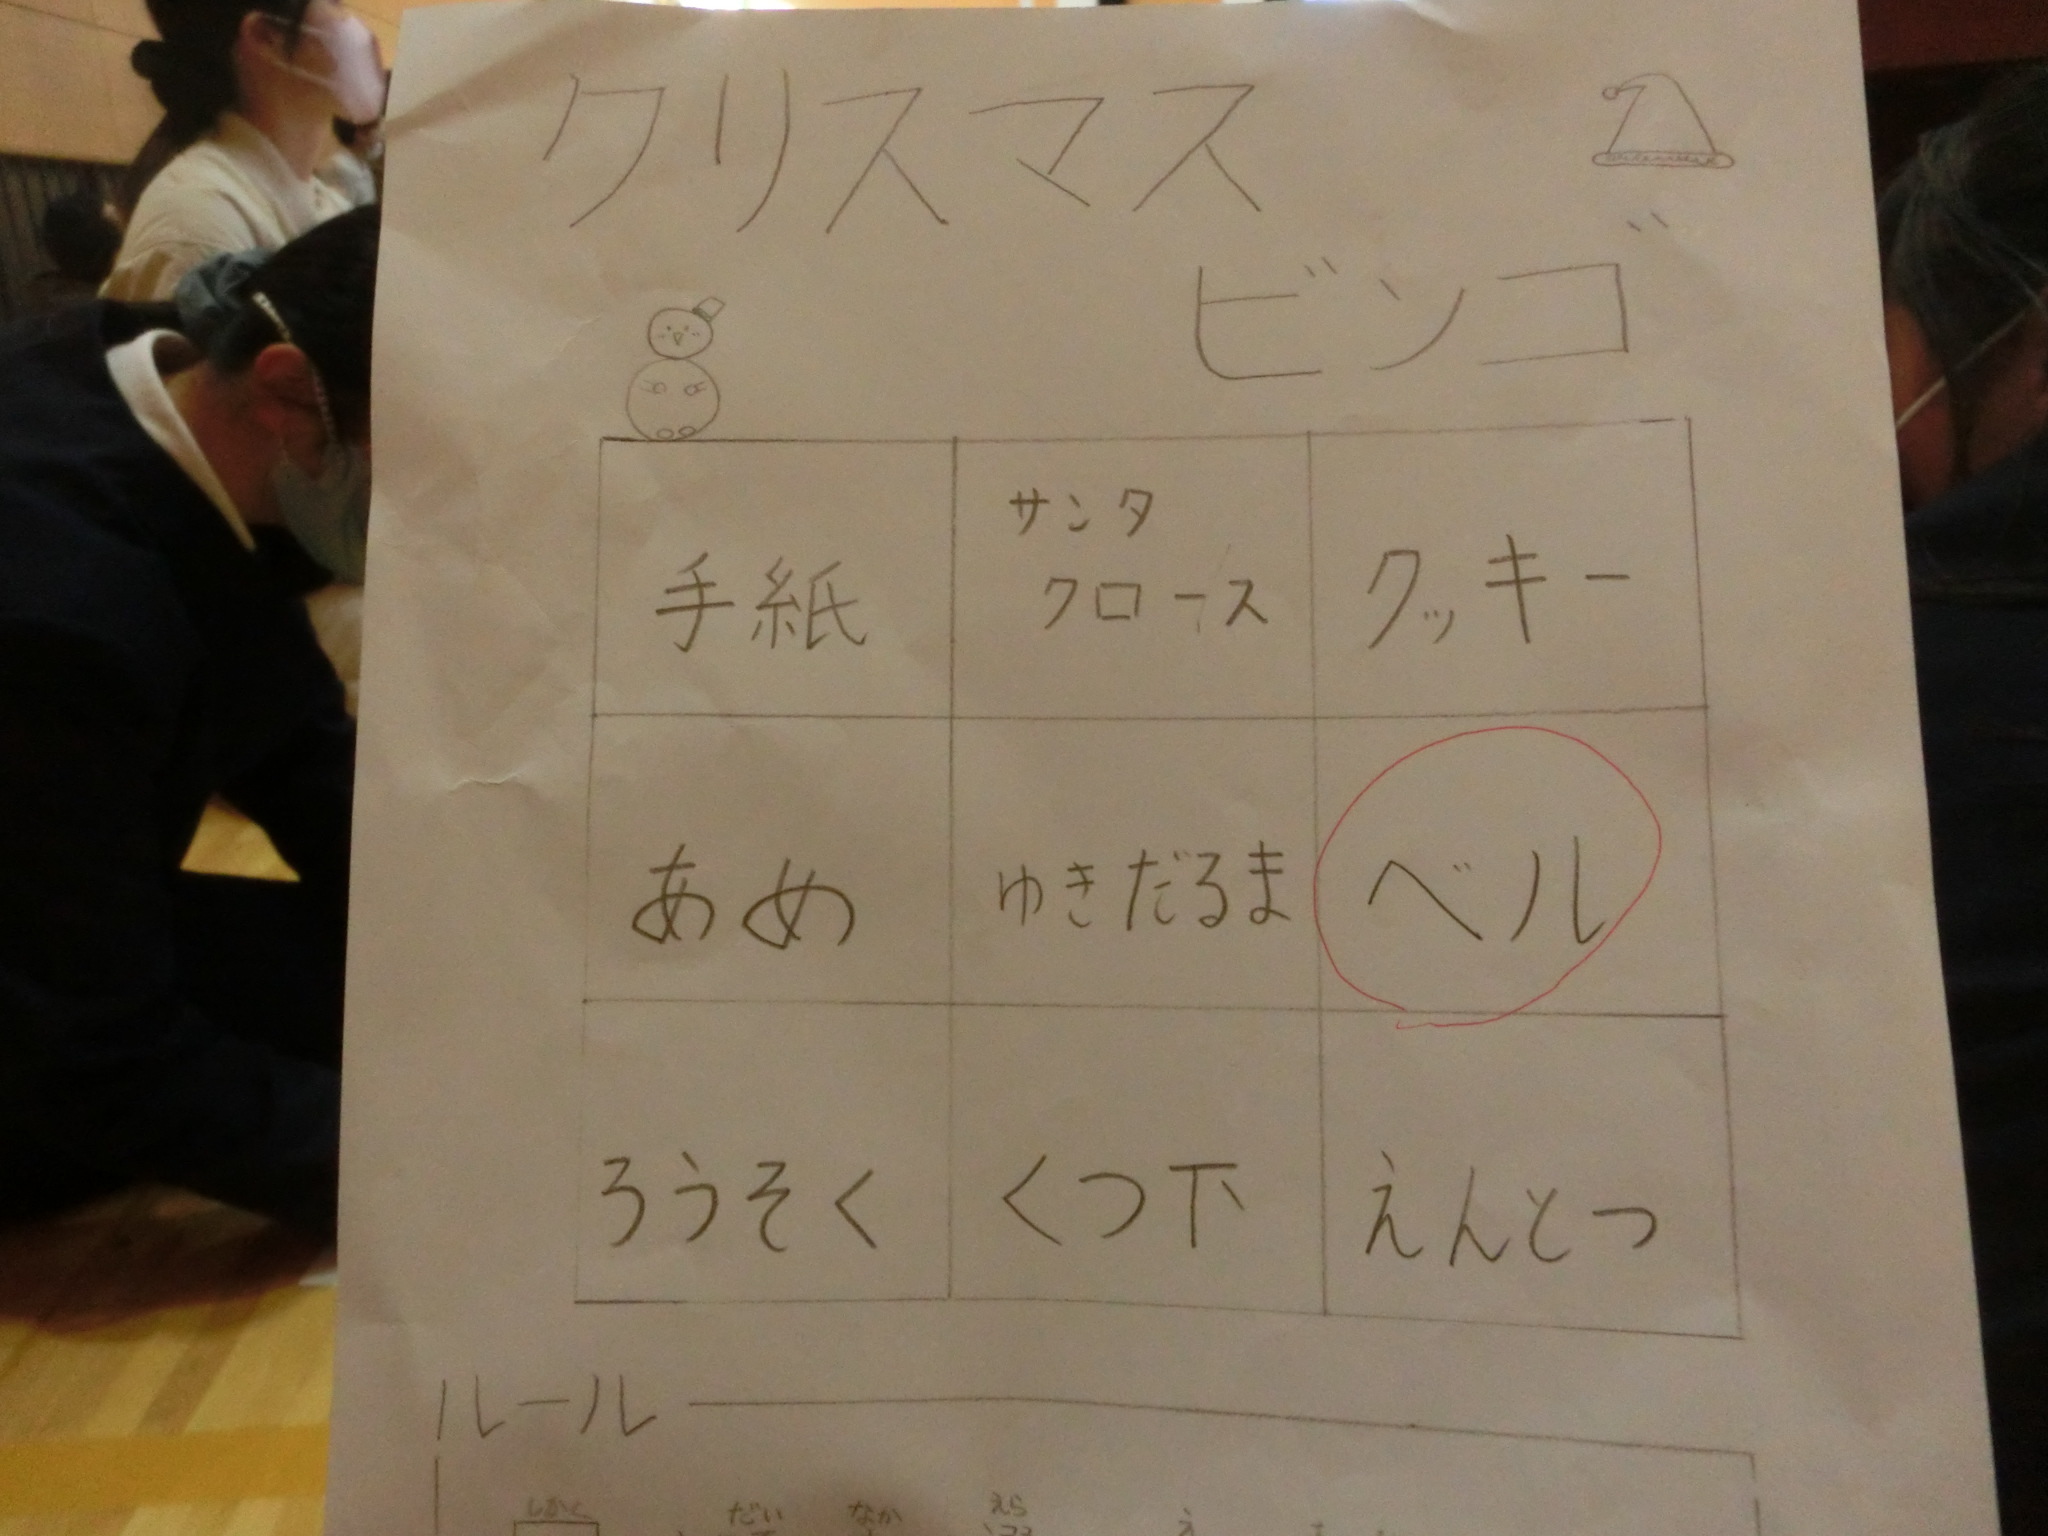 クリスマス
ビンゴ
手紙
サンタ
クロース
クッキー
あめ
ゆきだるま
ベル
ろうそく
くつ下
えんとつ
ルール
しかく
だい
なか
えら